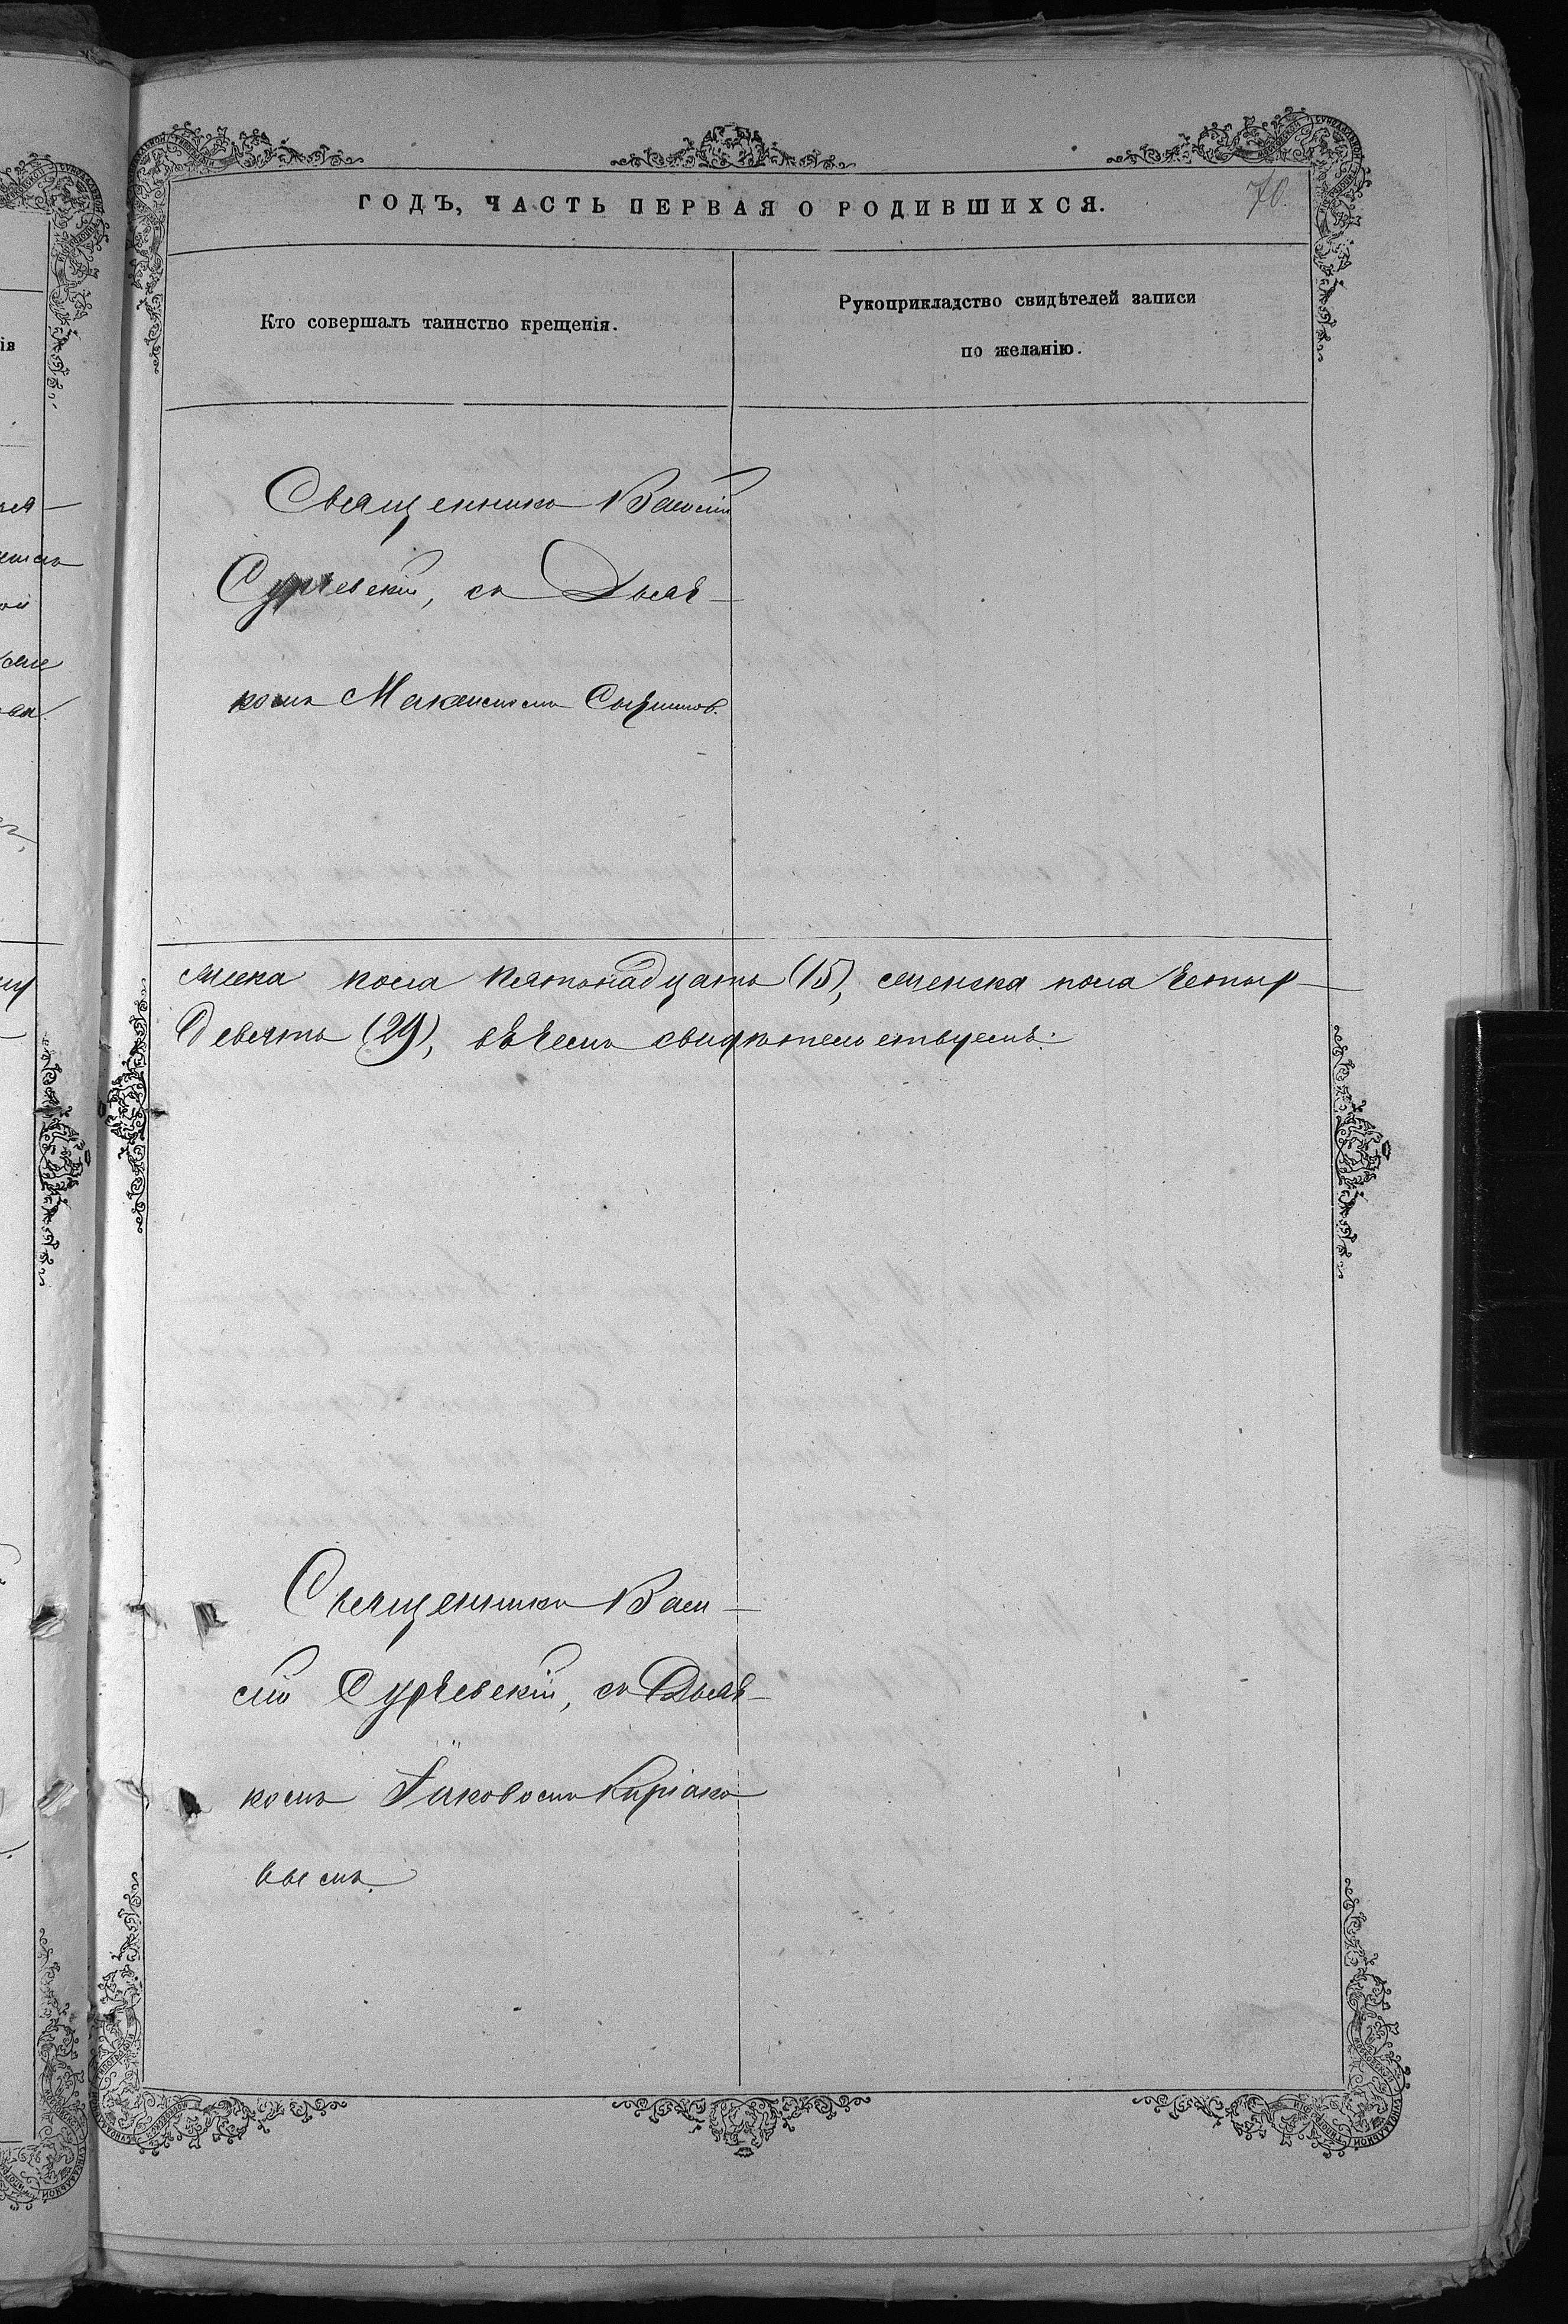 ГОДЪ, ЧАСТЬ ПЕРВАЯ О РОДИВШИХСЯ.
70.
Кто совершалъ таинство крещенія.
Рукоприкладство свидѣтелей записи
по желанію.
Священникъ Василій
Сурчевскій, съ Дьяч-
комъ Максимомъ
мужеска пола пятьнадцать (15), женска пола четыр-
девять (29), въ чемъ свидѣтельствуемъ:
Священникъ Васи-
лій Сурчевскій, съ Дьяч-
комъ Іаковомъ Киріако-
вымъ.